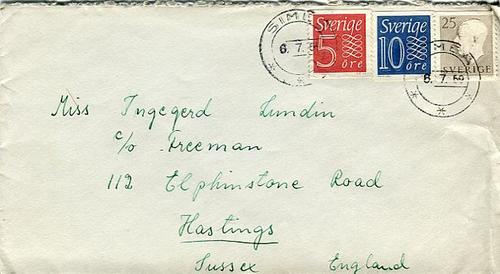 Sverige Sverige 25
5 öre 10 öre SVERIGE
6.7. 6.7.
Miss Ingegerd Lundin
c/o Freeman
112 Elphinstone Road
Hastings
Sussex England